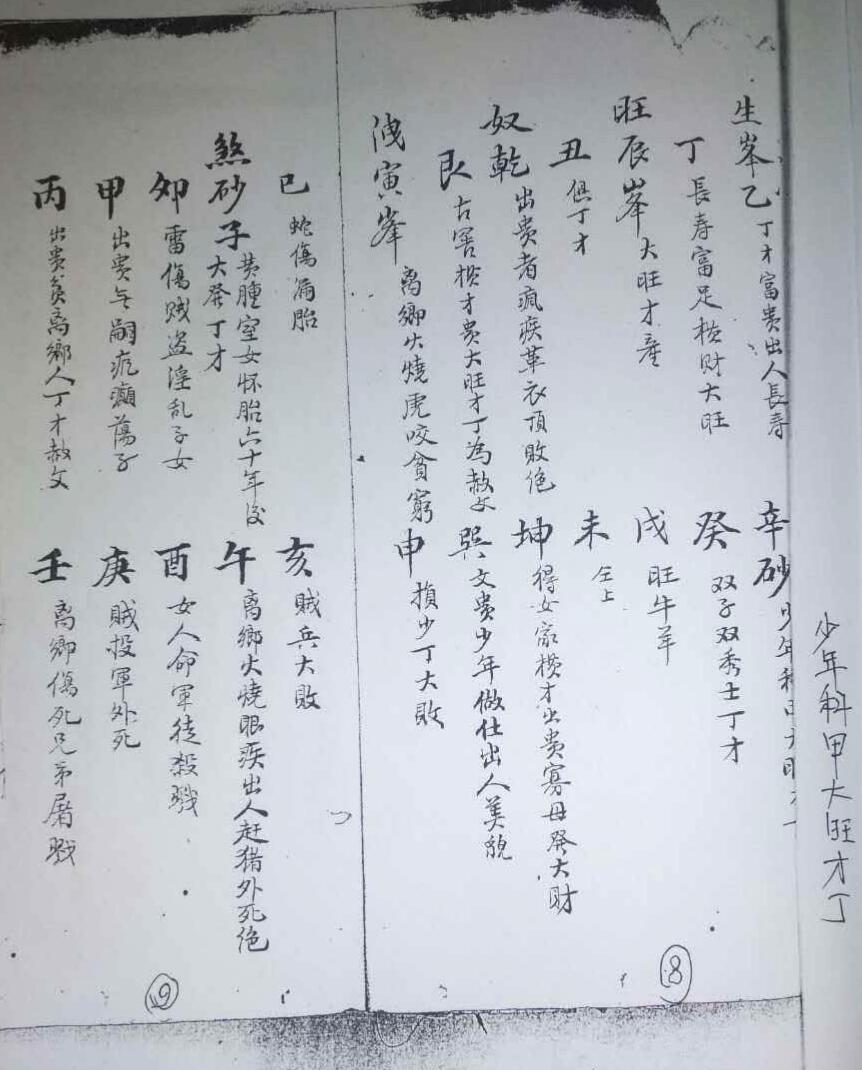 生峯乙丁才富贵出人長寿
丁長寿富足横财大旺
旺辰峯大旺才產
丑俱丁才
奴乾出贵者疯疾革衣頂敗绝
艮古窖横才贵大旺才丁為赦文
洩寅峯离鄉火燒虎咬貧窮
辛砂少年科甲大旺才丁
癸双子双秀士丁才
戌旺牛羊
未仝上
坤得女家横才出贵寡母癸大财
巽文贵少年做仕出人美貌
申損少丁大敗
少年科甲大旺才丁
8
巳蛇傷漏胎
煞砂子黄腫室女怀胎六十年後
大癸丁才
卯雷傷贼盗淫乱子女
甲出贵乏嗣疙癲蕩子
丙出贵貧离鄉人丁才赦文
亥贼兵大敗
午离鄉火燒眼疾出人赶猎外死绝
酉女人命軍徒殺戮
庚贼投軍外死
壬离鄉傷死兄弟屠戮
9